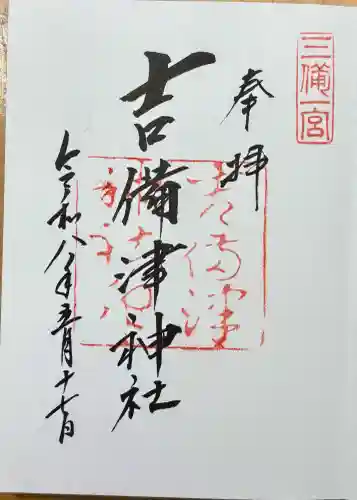 三備一宮
奉拝
吉備津神社
令和八年五月十七日